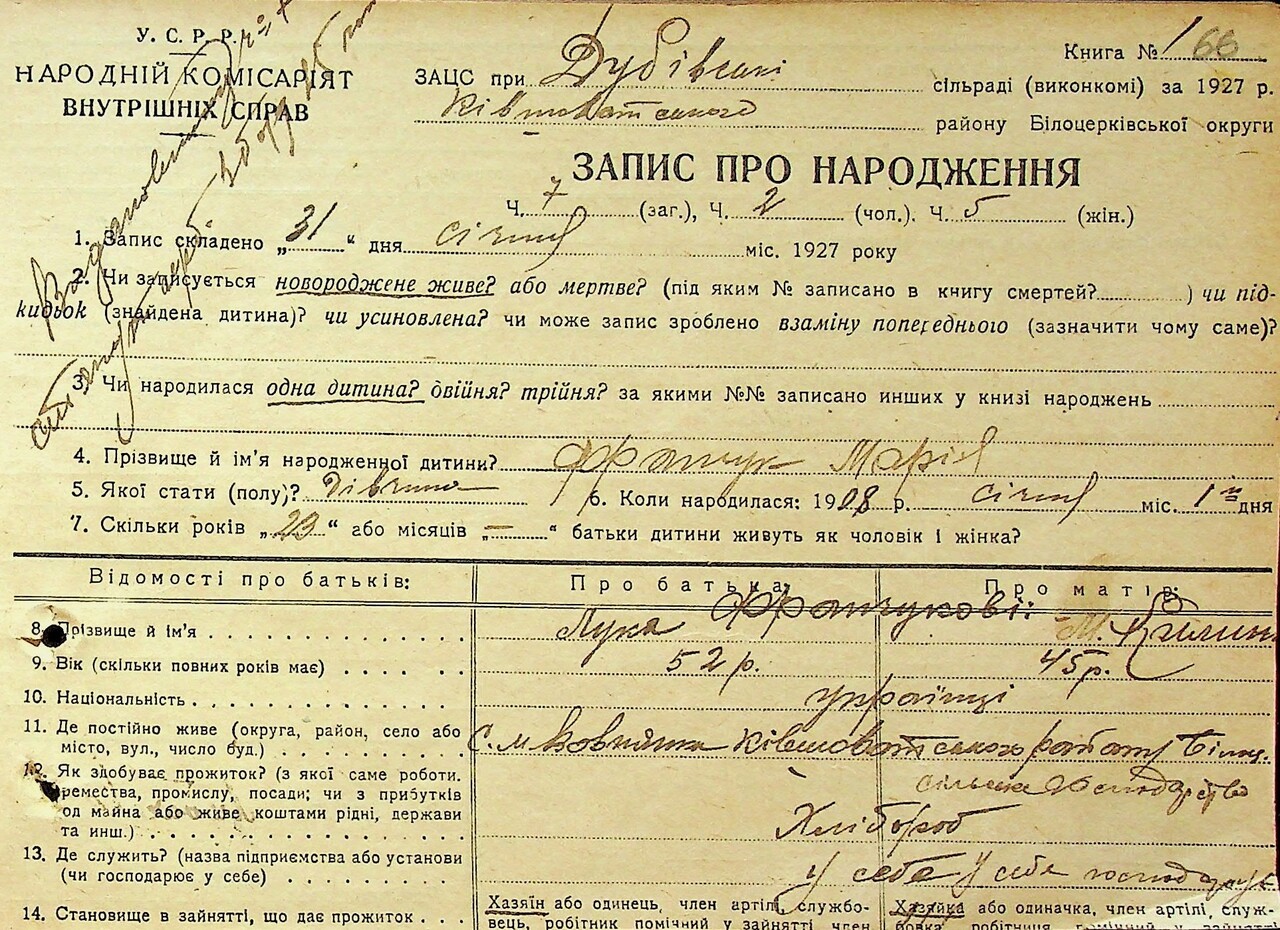 У. С. Р. Р.
НАРОДНІЙ КОМІСАРІЯТ
ВНУТРІШНІХ СПРАВ
Книга № 1 66
ЗАЦС при Дубівські сільраді (виконкомі) за 1927 р.
Ківшоватського району Білоцерківської округи
ЗАПИС ПРО НАРОДЖЕННЯ
Ч. 7 (заг.), Ч. 2 (чол.). Ч. 5 (жін.)
1. Запис складено „31“ дня січня міс. 1927 року
2. Чи записується новороджене живе? або мертве? (під яким № записано в книгу смертей? ) чи під-
кидьок (знайдена дитина)? чи усиновлена? чи може запис зроблено взаміну попереднього (зазначити чому саме)?
3. Чи народилася одна дитина? двійня? трійня? за якими №№ записано инших у книзі народжень
4. Прізвище й ім'я народженної дитини? Марія
5. Якої стати (полу)? дівчина 6. Коли народилася: 1908 р. січня міс. 1 дня
7. Скільки років „23“ або місяців „—“ батьки дитини живуть як чоловік і жінка?
Відомості про батьків: Про батька Про матір:
8. Прізвище й ім'я Лука
9. Вік (скільки повних років має) 52 р. 45 р.
10. Національність українці
11. Де постійно живе (округа, район, село або
місто, вул., число буд.) С. м Ковшовацького району Білоц.
12. Як здобуває прожиток? (з якої саме роботи. сільське господарство
ремества, промислу, посади; чи з прибутків
од майна або живе коштами рідні, держави Хлібороб
та инш.)
13. Де служить? (назва підприємства або установи
(чи господарює у себе) у себе у себе господарює
14. Становище в зайнятті, що дає прожиток Хазяїн або одинець, член артілі, службо- Хазяйка або одиначка, член артілі, служ-
вець, робітник помічний у зайнятті член бовка, робітниця помічний у зайнятті